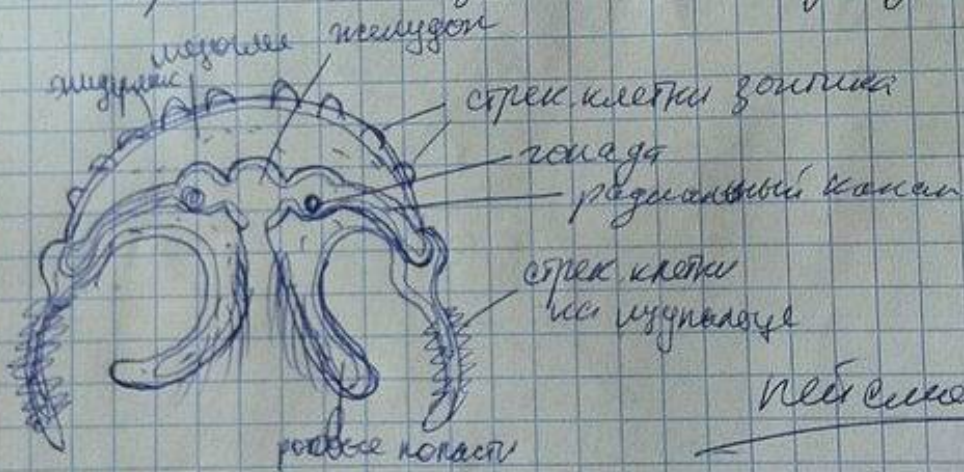 мезоглея желудок
эпидермис
стрек. клетки зонтика
гонада
радиальный канал
стрек. клетки
на щупальце
ротовые лопасти